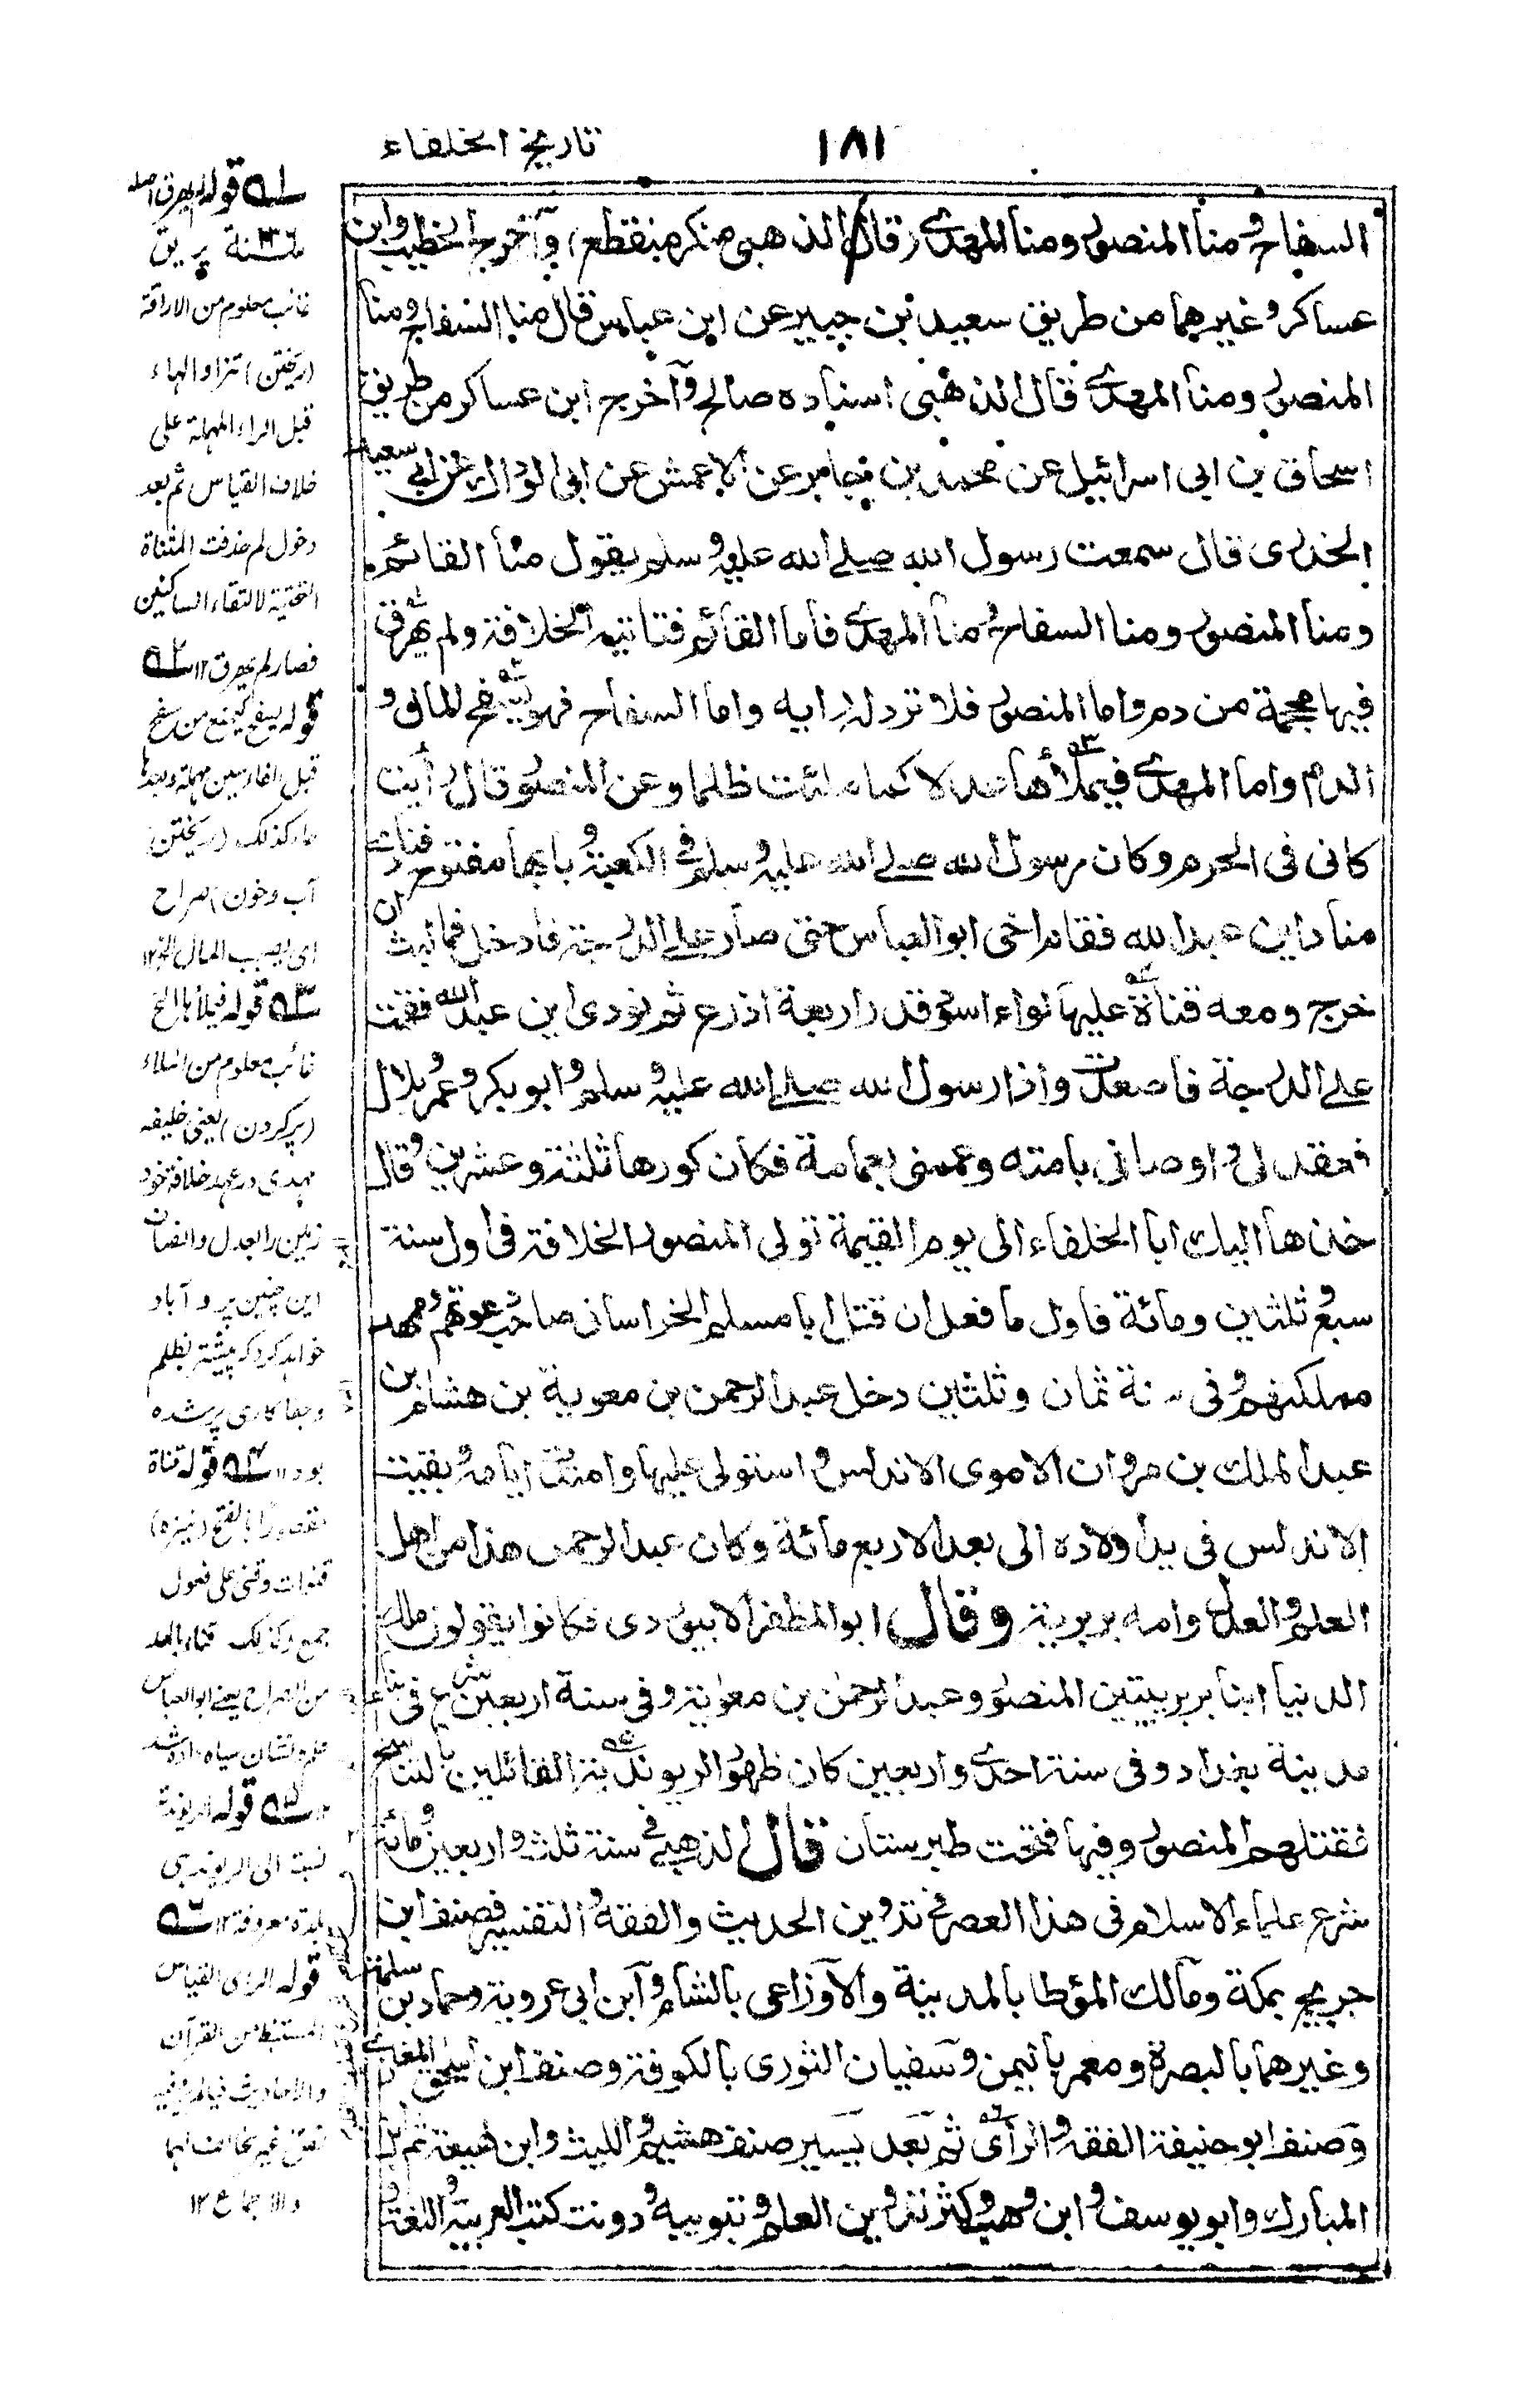 ١٨١
تاريخ الخلفاء
السفاح ومنا المنصور ومنا المهدى (قال الذهبى منكر منقطع) وآخرج الخطيب وابن
عساكر وغيرهما من طريق سعيد بن جبير عن ابن عباس قال منا السفاح ومنا
المنصور ومنا المهدى قال الذهبى اسناده صالح وآخرج ابن عساكر من طريق
اسحاق بن ابى اسرائيل عن محمد بن جابر عن الاعمش عن ابى الوداك عن ابى سعيد
الخدرى قال سمعت رسول الله صلے الله عليه وسلم يقول منا القائم
ومنا المنصور ومنا السفاح ومنا المهدى فاما القائم فتاتيه الخلافة ولم يهرق
فيها محجمة من دم واما المنصور فلا ترد له راية واما السفاح فهو يسفح المال و
الدم واما المهدى فيملأها عدلا كما ملئت ظلما وعن المنصور قال رأيت
كانى فى الحرم وكان رسول الله صلے الله عليه وسلم فى الكعبة وبابها مفتوح فنادى
مناد اين عبد الله فقام اخى ابو العباس حتى صار على الدرجة فادخل فما لبث ان
خرج ومعه قناة عليها لواء اسود قدر اربعة اذرع ثم نودى اين عبد الله فقمت
على الدرجة فاصعدت واذا رسول الله صلے الله عليه وسلم وابو بكر وعمر وبلال
فعقد لى واوصانى بامته وعممنى بعمامة فكان كورها ثلثة وعشرين وقال
خذها اليك ابا الخلفاء الى يوم القيمة تولى المنصور الخلافة فى اول سنة
سبع وثلثين ومائة فاول ما فعل ان قتل ابا مسلم الخراسانى صاحب دعوتهم وممهد
مملكتهم وفى سنة ثمان وثلثين دخل عبد الرحمن بن معوية بن هشام بن
عبد الملك بن مروان الاموى الاندلس واستولى عليها وامتدت ايامه وبقيت
الاندلس فى يد اولاده الى بعد الاربع مائة وكان عبد الرحمن هذا من اهل
العلم والعدل وامه بربرية وقال ابو المظفر الابيوردى فكانوا يقولون ملك
الدنيا ابنا بربريتين المنصور وعبد الرحمن بن معوية وفى سنة اربعين شرع فى بناء
مدينة بغداد وفى سنة احدى واربعين كان ظهور الريوندية القائلين بالتناسخ
فقتلهم المنصور وفيها فتحت طبرستان قال الذهبى فى سنة ثلث واربعين ومائة
شرع علماء الاسلام فى هذا العصر فى تدوين الحديث والفقه والتفسير فصنف ابن
جريج بمكة ومالك المؤطا بالمدينة والاوزاعى بالشام وابن ابى عروبة وحماد بن سلمة
وغيرهما بالبصرة ومعمر باليمن وسفيان الثورى بالكوفة وصنف ابن اسحق المغازى
وصنف ابو حنيفة الفقه والرأى ثم بعد يسير صنف هشيم والليث وابن لهيعة ثم ابن
المبارك وابو يوسف وابن وهب وكثر تدوين العلم وتبويبه ودونت كتب العربية واللغة و
قوله لم يهرق اصله
يريق
غائب معلوم من الاراقة
(ريختن) تزاد الهاء
قبل الراء المهملة على
خلاف القياس ثم بعد
دخول لم حذفت المثناة
التحتية لالتقاء الساكنين
فصار لم يهرق ١٢
قوله يسفح كيفتح من سفح
قبل الفاء سين مهملة وبعدها
حاء كذلك (ريختن)
آب وخون) صراح
اى يصب المال الخ ١٢
قوله فيملأها الخ
غائب معلوم من الملاء
(پر کردن) یعنی خلیفه
مهدی در عهد خلافة خود
زمین را بعدل وانصاف
این چنین پر و آباد
خواهد کرد که پیشتر بظلم
وجفا کاری پر شده
بود ١٢ قوله قناة
بالفتح (نیزه)
قنوات وقنى على فعول
جمع وكذلك قناء بالمد
من الصراح یعنی ابو العباس
علم ونشان سیاه داده شد
١٢ قوله الريوندية
نسبة الى الريوندى
بلدة معروفة ١٢
قوله الراى القياس
المستنبط من القرآن
والاحاديث فيما لم يرد فيه
نص غير مخالف لهما
والاجماع ١٢